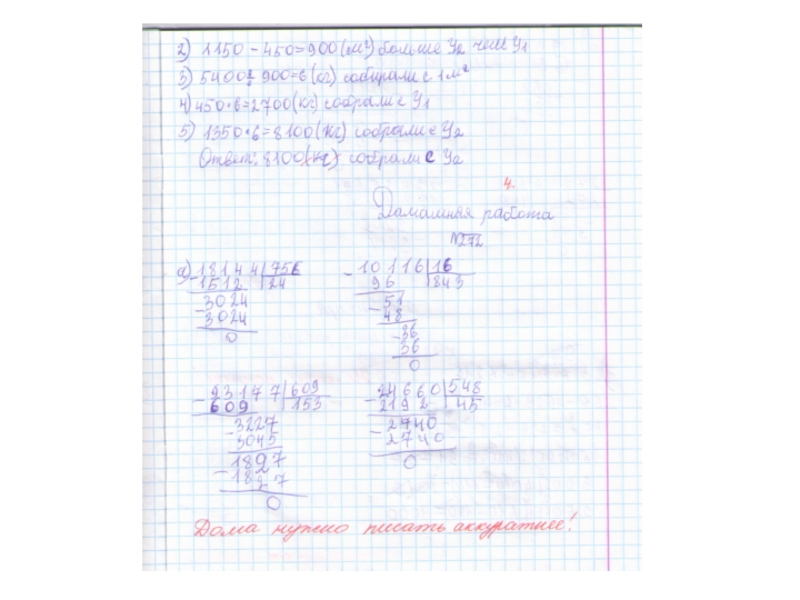 2) 1150 - 450 = 900 (м²) больше У2 чем У1
3) 5400 : 900 = 6 (кг) собирали с 1 м²
4) 450 · 6 = 2700 (кг) собрали с У1
5) 1350 · 6 = 8100 (кг) собрали с У2
Ответ: 8100 (кг) собрали с У2
4.
Домашняя работа
№272
а) 18144 | 756
- 1512 | 24
3024
- 3024
0
- 10116 | 16
96 | 843
51
- 48
- 36
36
0
- 93177 | 609
609 | 153
- 3227
3045
- 1827
1827
0
- 24660 | 548
2192 | 45
- 2740
2740
0
Дома нужно писать аккуратнее!